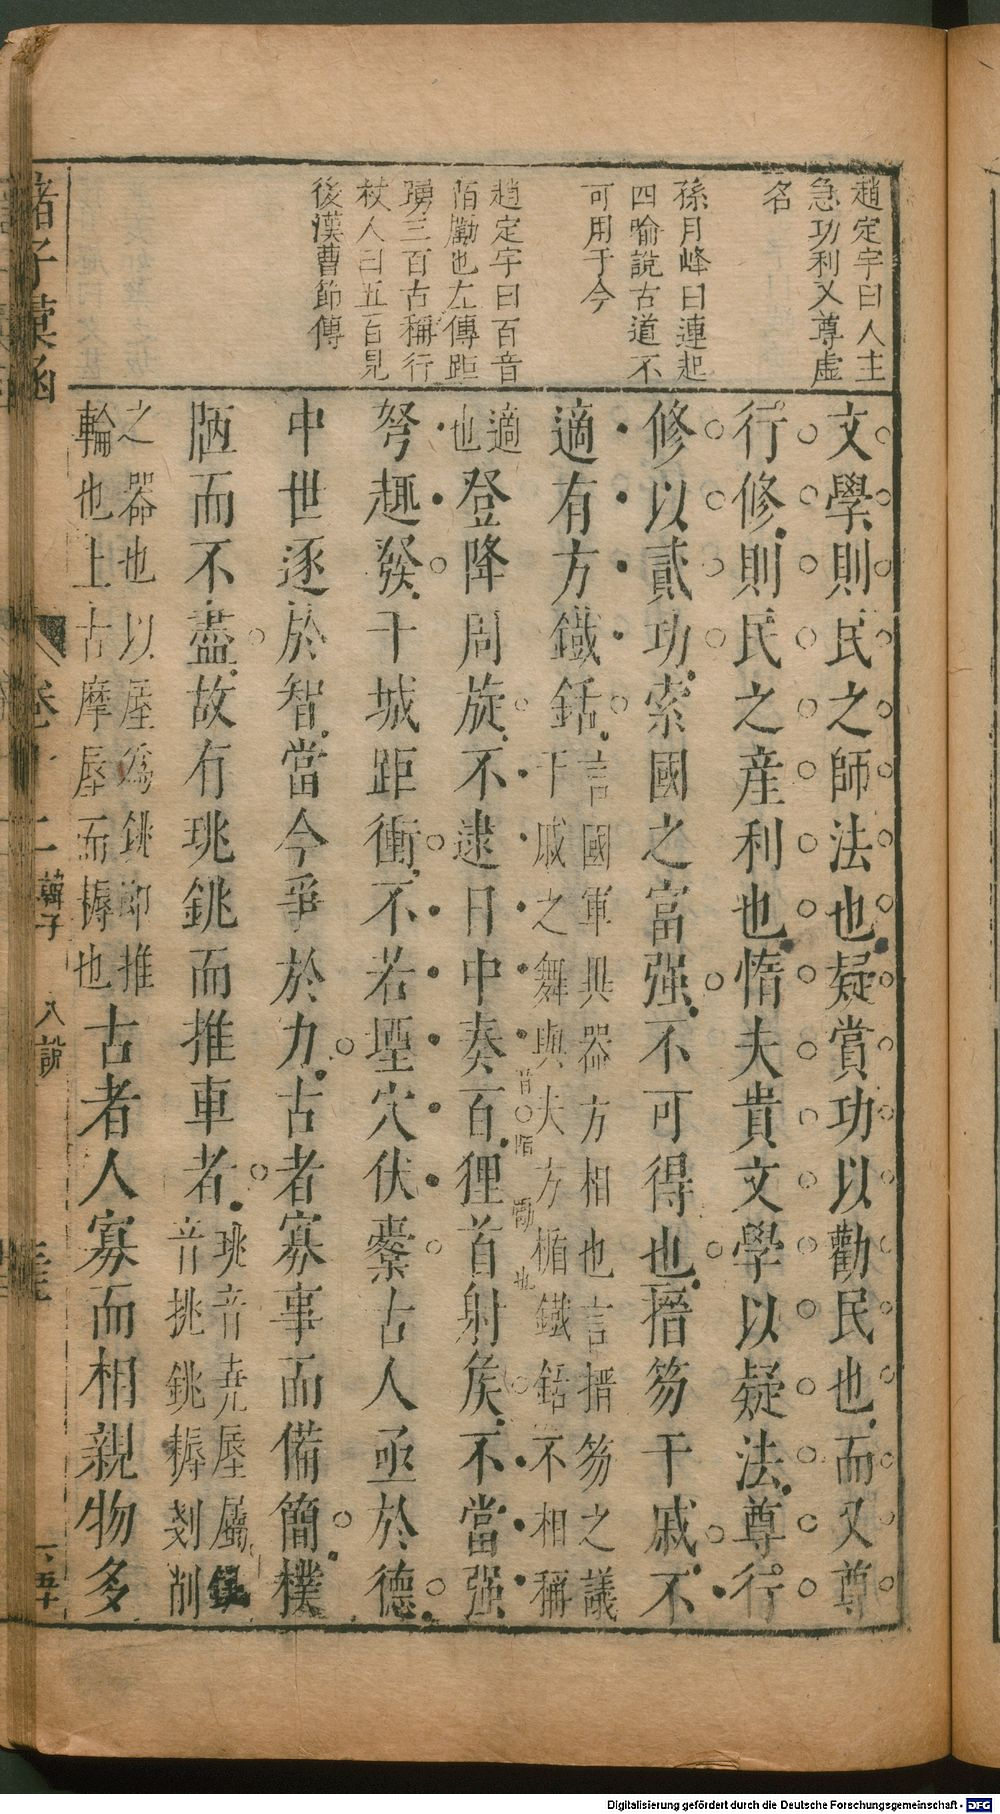 趙定宇曰人主
急功利又尊虚
名
孫月峰曰連起
四喻說古道不
可用于今
趙定宇曰百音
陌勵也左傳距
躍三百古稱行
杖人曰五百見
後漢曹節傳
文學則民之師法也疑賞功以勸民也而又尊
行修則民之産利也惰夫貴文學以疑法尊行
修以貳功索國之富强不可得也搢笏干戚不
適有方鐵銛
言國軍興器方相也言搢笏之議
干戚之舞與夫方楯鐵銛不相稱
適
也
登降周旋不逮日中奏百
音陌勵也
狸首射矦不當强
弩趣發干城距衝不若堙穴伏櫜古人亟於德
中世逐於智當今爭於力古者寡事而備簡樸
陋而不盡故有珧銚而推車者
珧音堯蜃屬
音挑銚耨剗削
之器也以蜃爲銚卽推
輪也上古摩蜃而耨也
古者人寡而相親物多
諸子彙函
卷十二
韓子
八說
五
Digitalisierung gefördert durch die Deutsche Forschungsgemeinschaft - DFG